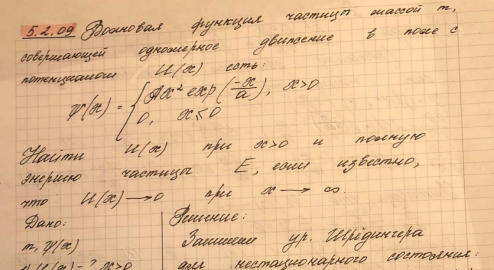 5.2.09 Волновая функция частицы массой m,
совершающей одномерное движение в поле с
потенциалом U(x) есть:
ψ(x) = { Ax² exp(-x/a), x>0
0, x≤0
Найти U(x) при x>0 и полную
энергию частицы E, если известно,
что U(x) → 0 при x → ∞.
Дано: Решение:
m, ψ(x) Запишем ур. Шрёдингера
U(x)-? x>0 для нестационарного состояния: